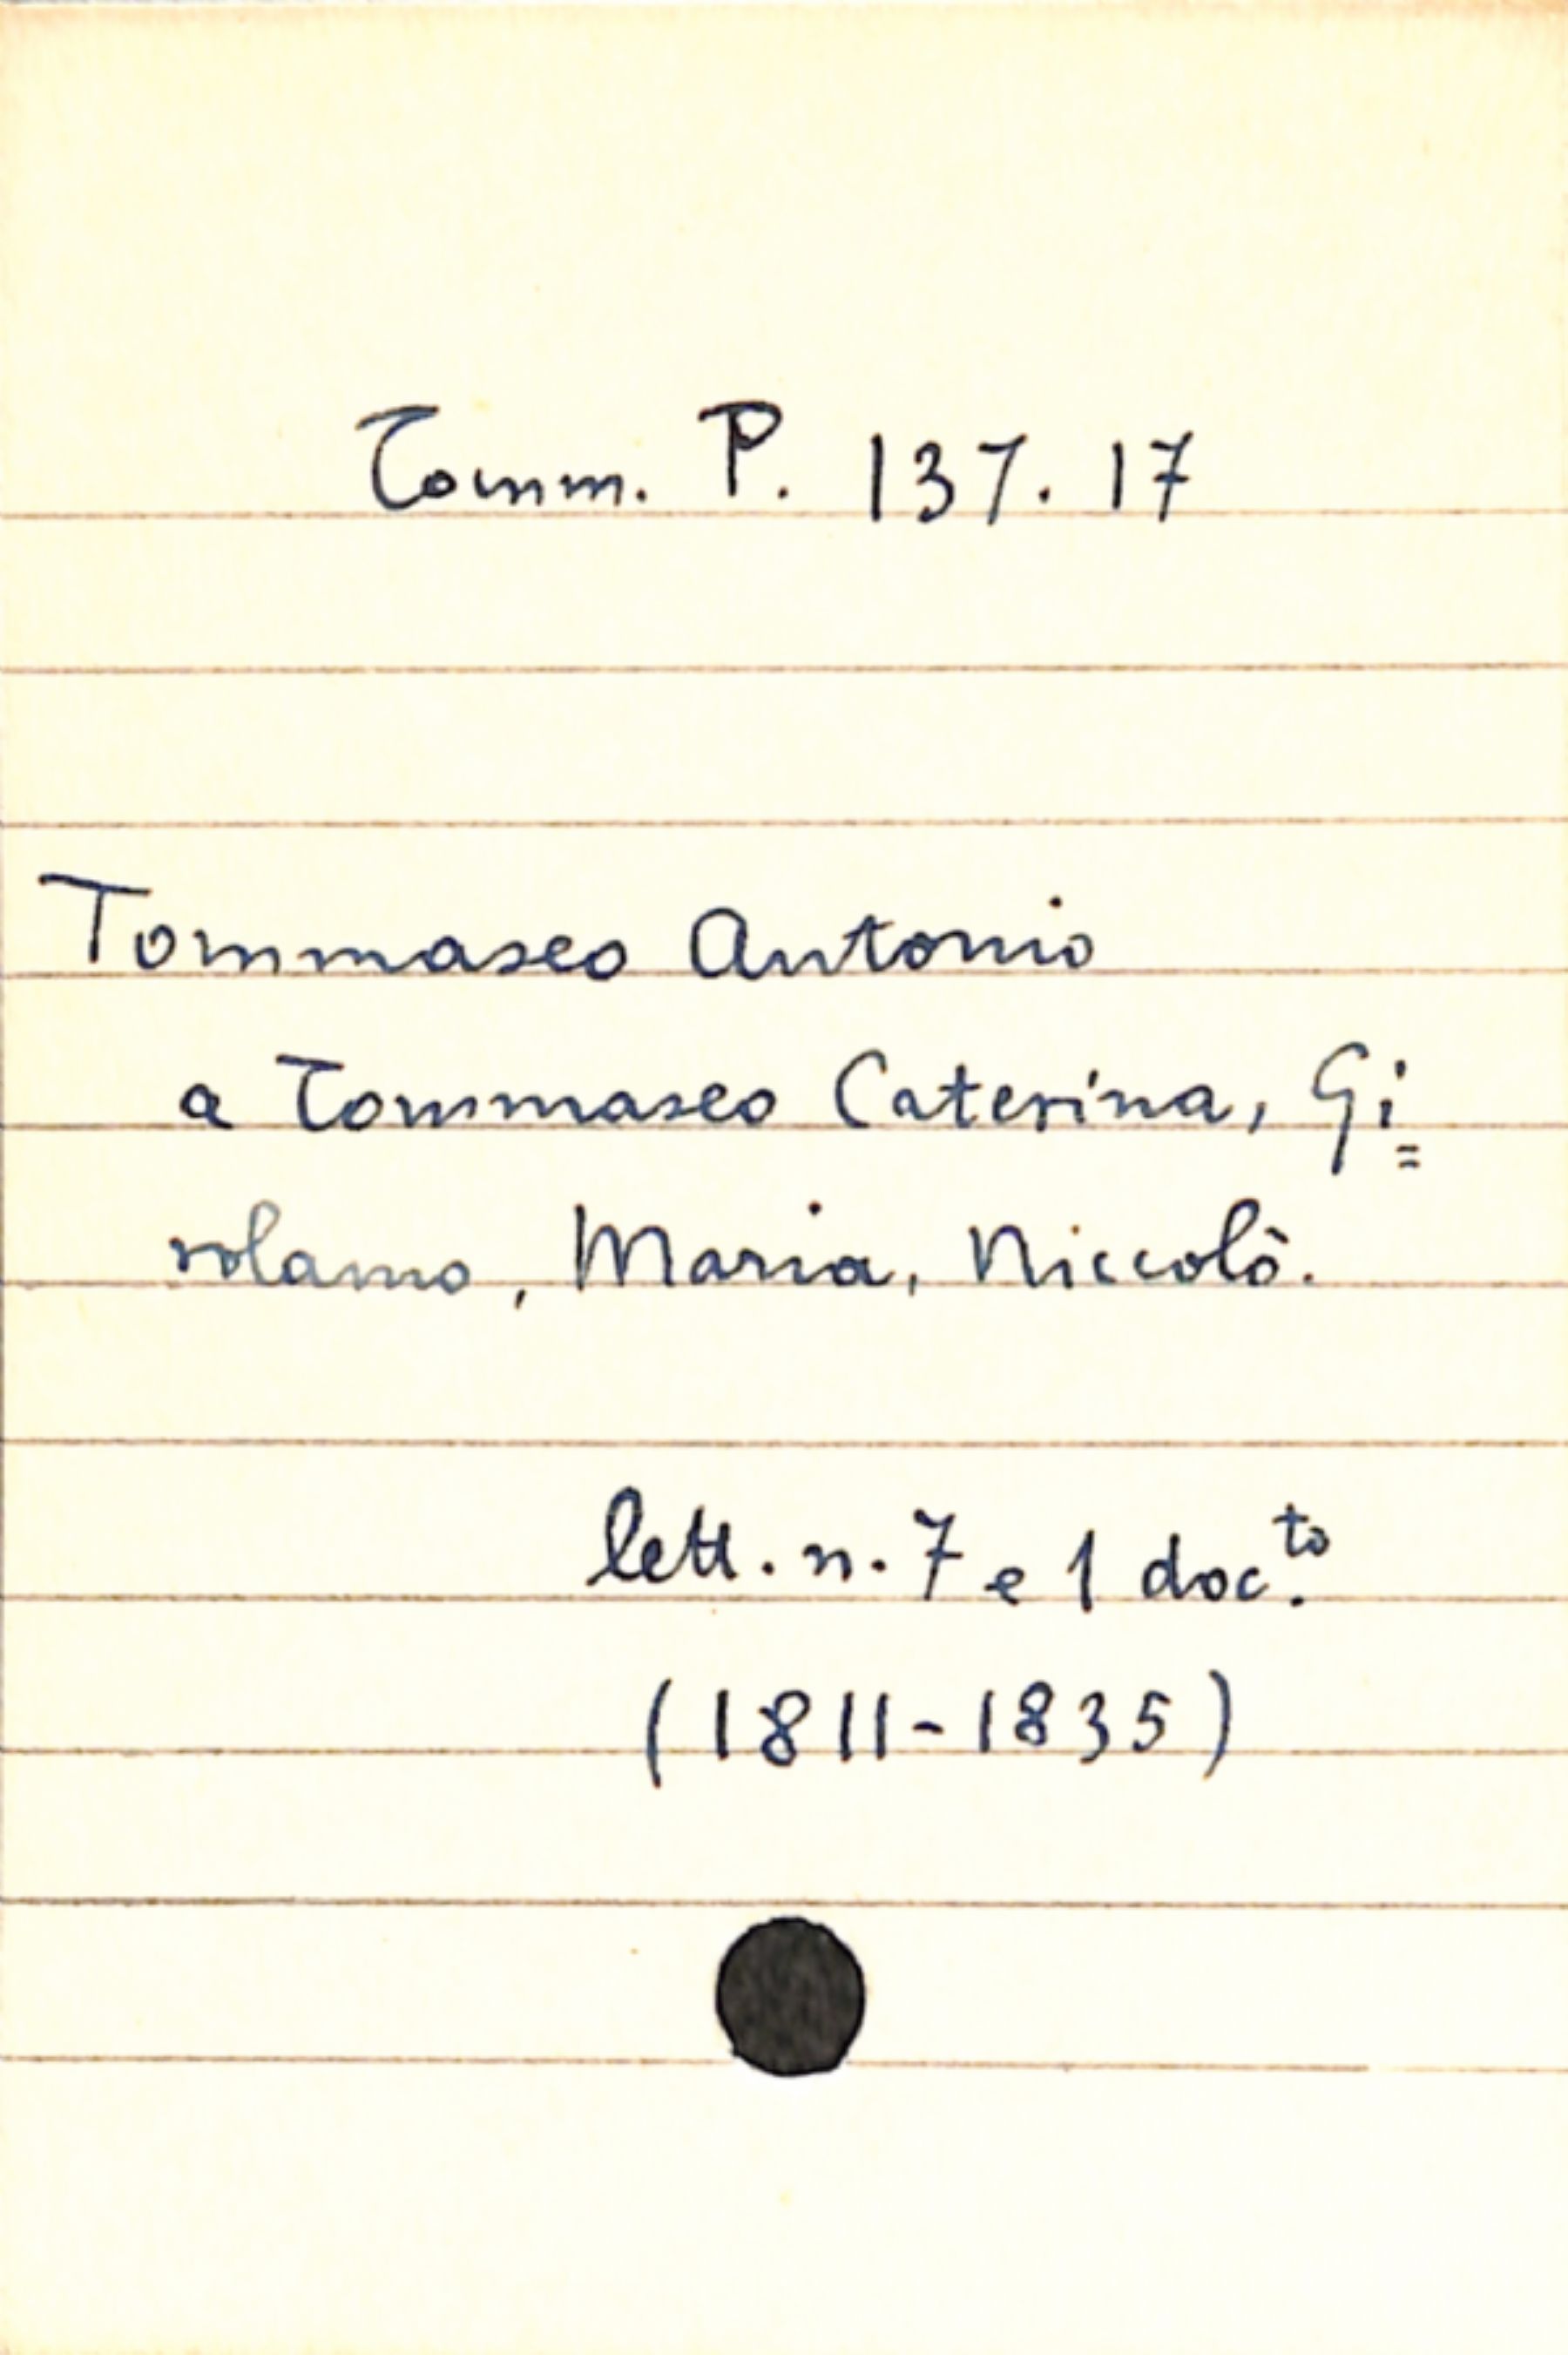 Tomm. P. 137. 17
Tommaseo Antonio
a Tommaseo Caterina, Gi=
rolamo, Maria, Niccolò.
lett. n. 7 e 1 doc.to
(1811-1835)